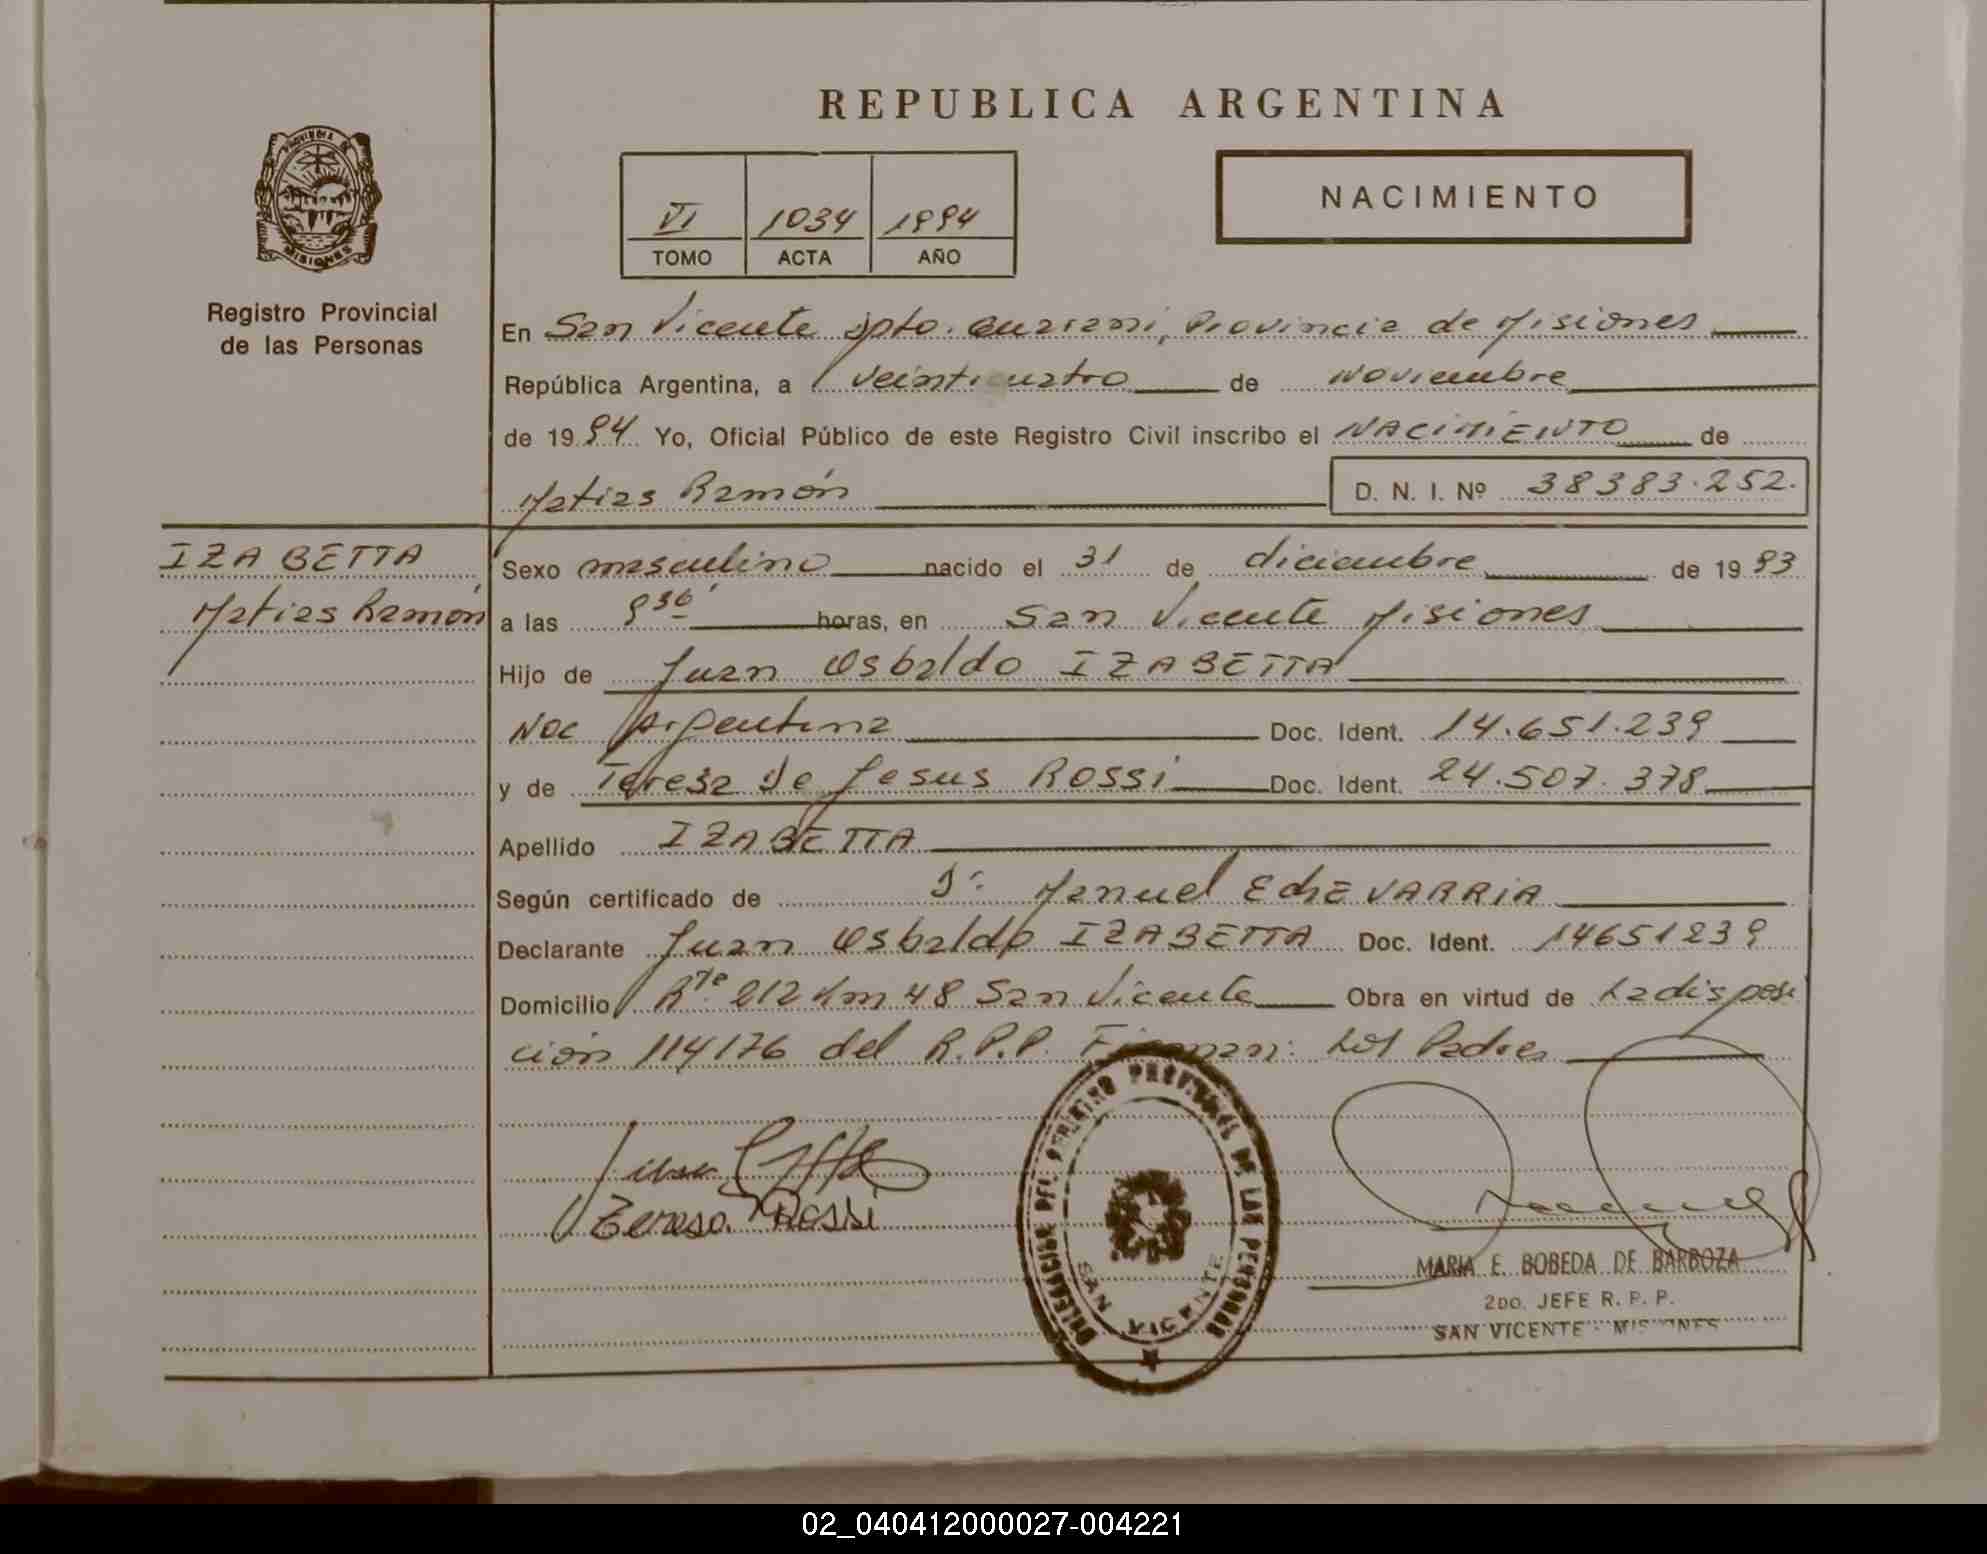 REPUBLICA ARGENTINA
PROVINCIA DE
MISIONES
Registro Provincial
de las Personas
VI 1034 1994
TOMO ACTA AÑO
NACIMIENTO
En San Vicente Dpto. Guarani, Provincia de Misiones
República Argentina, a veinticuatro de Noviembre
de 1994 Yo, Oficial Público de este Registro Civil inscribo el NACIMIENTO de
Matias Ramón D. N. I. Nº 38383.252.
IZABETTA
Matias Ramón
Sexo masculino nacido el 31 de diciembre de 1993
a las 9 36' horas, en San Vicente Misiones
Hijo de Juan Osbaldo IZABETTA
Nac Argentina Doc. Ident. 14.651.239
y de Teresa de Jesus ROSSi Doc. Ident. 24.507.378
Apellido IZABETTA
Según certificado de Dr. Manuel EchEVARRiA
Declarante Juan Osbaldo IZABETTA Doc. Ident. 14651239
Domicilio Rta. 212 Km 48 San Vicente Obra en virtud de La disposi
ción 114176 del R.P.P. Firman: Los Padres
Teresa Rossi
DELEGACION DEL REGISTRO PROVINCIAL DE LAS PERSONAS
SAN VICENTE
MARIA E. BOBEDA DE BARBOZA
2DO. JEFE R. P. P.
SAN VICENTE - MISIONES
02_040412000027-004221